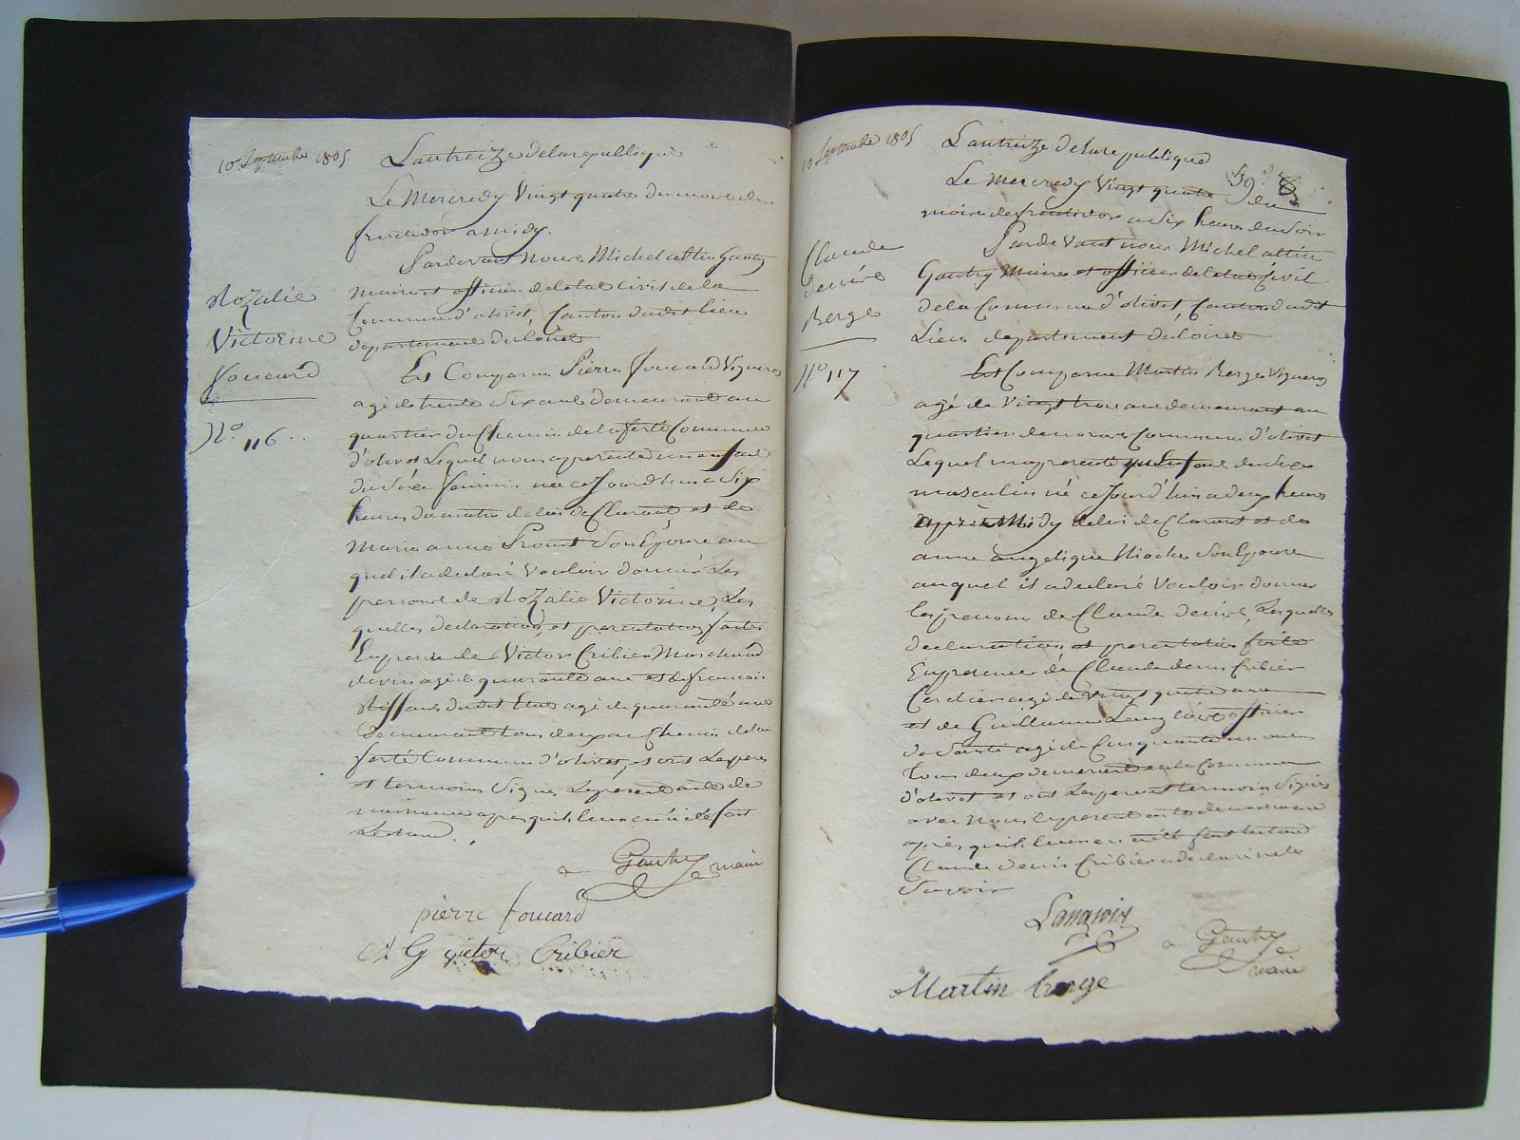 10 Septembre 1805
L'an treize de la republique
Le Mercredy Vingt quatre du mois de
fructidor a midy.
Pardevant Nous Michel attin Gautry
maire et officier de letat civil de la
Commune d'olivet, Canton dudit lieu
departement du loiret
Rozalie
Victorine
foucard
N.o 116
Est Comparu Pierre foucard Vigneron
agé de trente Six ans demeurant au
quartier du Chemin de la ferté Commune
d'olivet Lequel nous a presenté un enfant
du Sexe feminin né ce Jourd'hui a Six
heures du matin de lui declarant et de
Marie anne Proust Son Epouse au
quel il a declaré Vouloir donner Les
prenoms de Rozalie Victorine, Les
quelles declaration et presentation faites
En presence de Victor Cribier Marchand
de vin agé de quarante ans et de francois
agé de quarante ans
demeurant tous deux au Chemin de la
ferté Commune d'olivet, et ont Le pere
et temoins Signé Le present acte de
naissance apres qu'il leur en a eté fait
Lecture.
Gautry maire
pierre foucard
Victor Cribier
10 Septembre 1805
L'an treize de la republique
59.
Le Mercredy Vingt quatre du
mois de fructidor a Six heures du Soir
Pardevant nous Michel attin
Gautry Maire et officier de letat Civil
de la Commune d'olivet, Canton dudit
Lieu departement du loiret
Claude
desiré
Berge
N.o 117
Est Comparu Martin Berge Vigneron
agé de Vingt trois ans demeurant au
quartier Commune d'olivet
Lequel nous a presenté un Enfant du Sexe
masculin né ce Jourd'hui a deux heures
après Midy de lui declarant et de
anne angelique Son Epouse
auquel il a declaré Vouloir donner
les prenoms de Claude desiré, Lesquelles
declaration et presentation faite
En presence de Claude denis Cribier
agé de Vingt quatre ans
et de Guillaume Langlois officier
de Santé agé de Cinquante un ans
tous deux demeurant en la Commune
d'olivet et ont Le pere et temoin Signés
avec Nous Le present acte de naissance
après qu'il leur en a eté fait lecture
Claude denis Cribier a declaré ne le
Savoir
Langlois
Gautry
maire
Martin berge